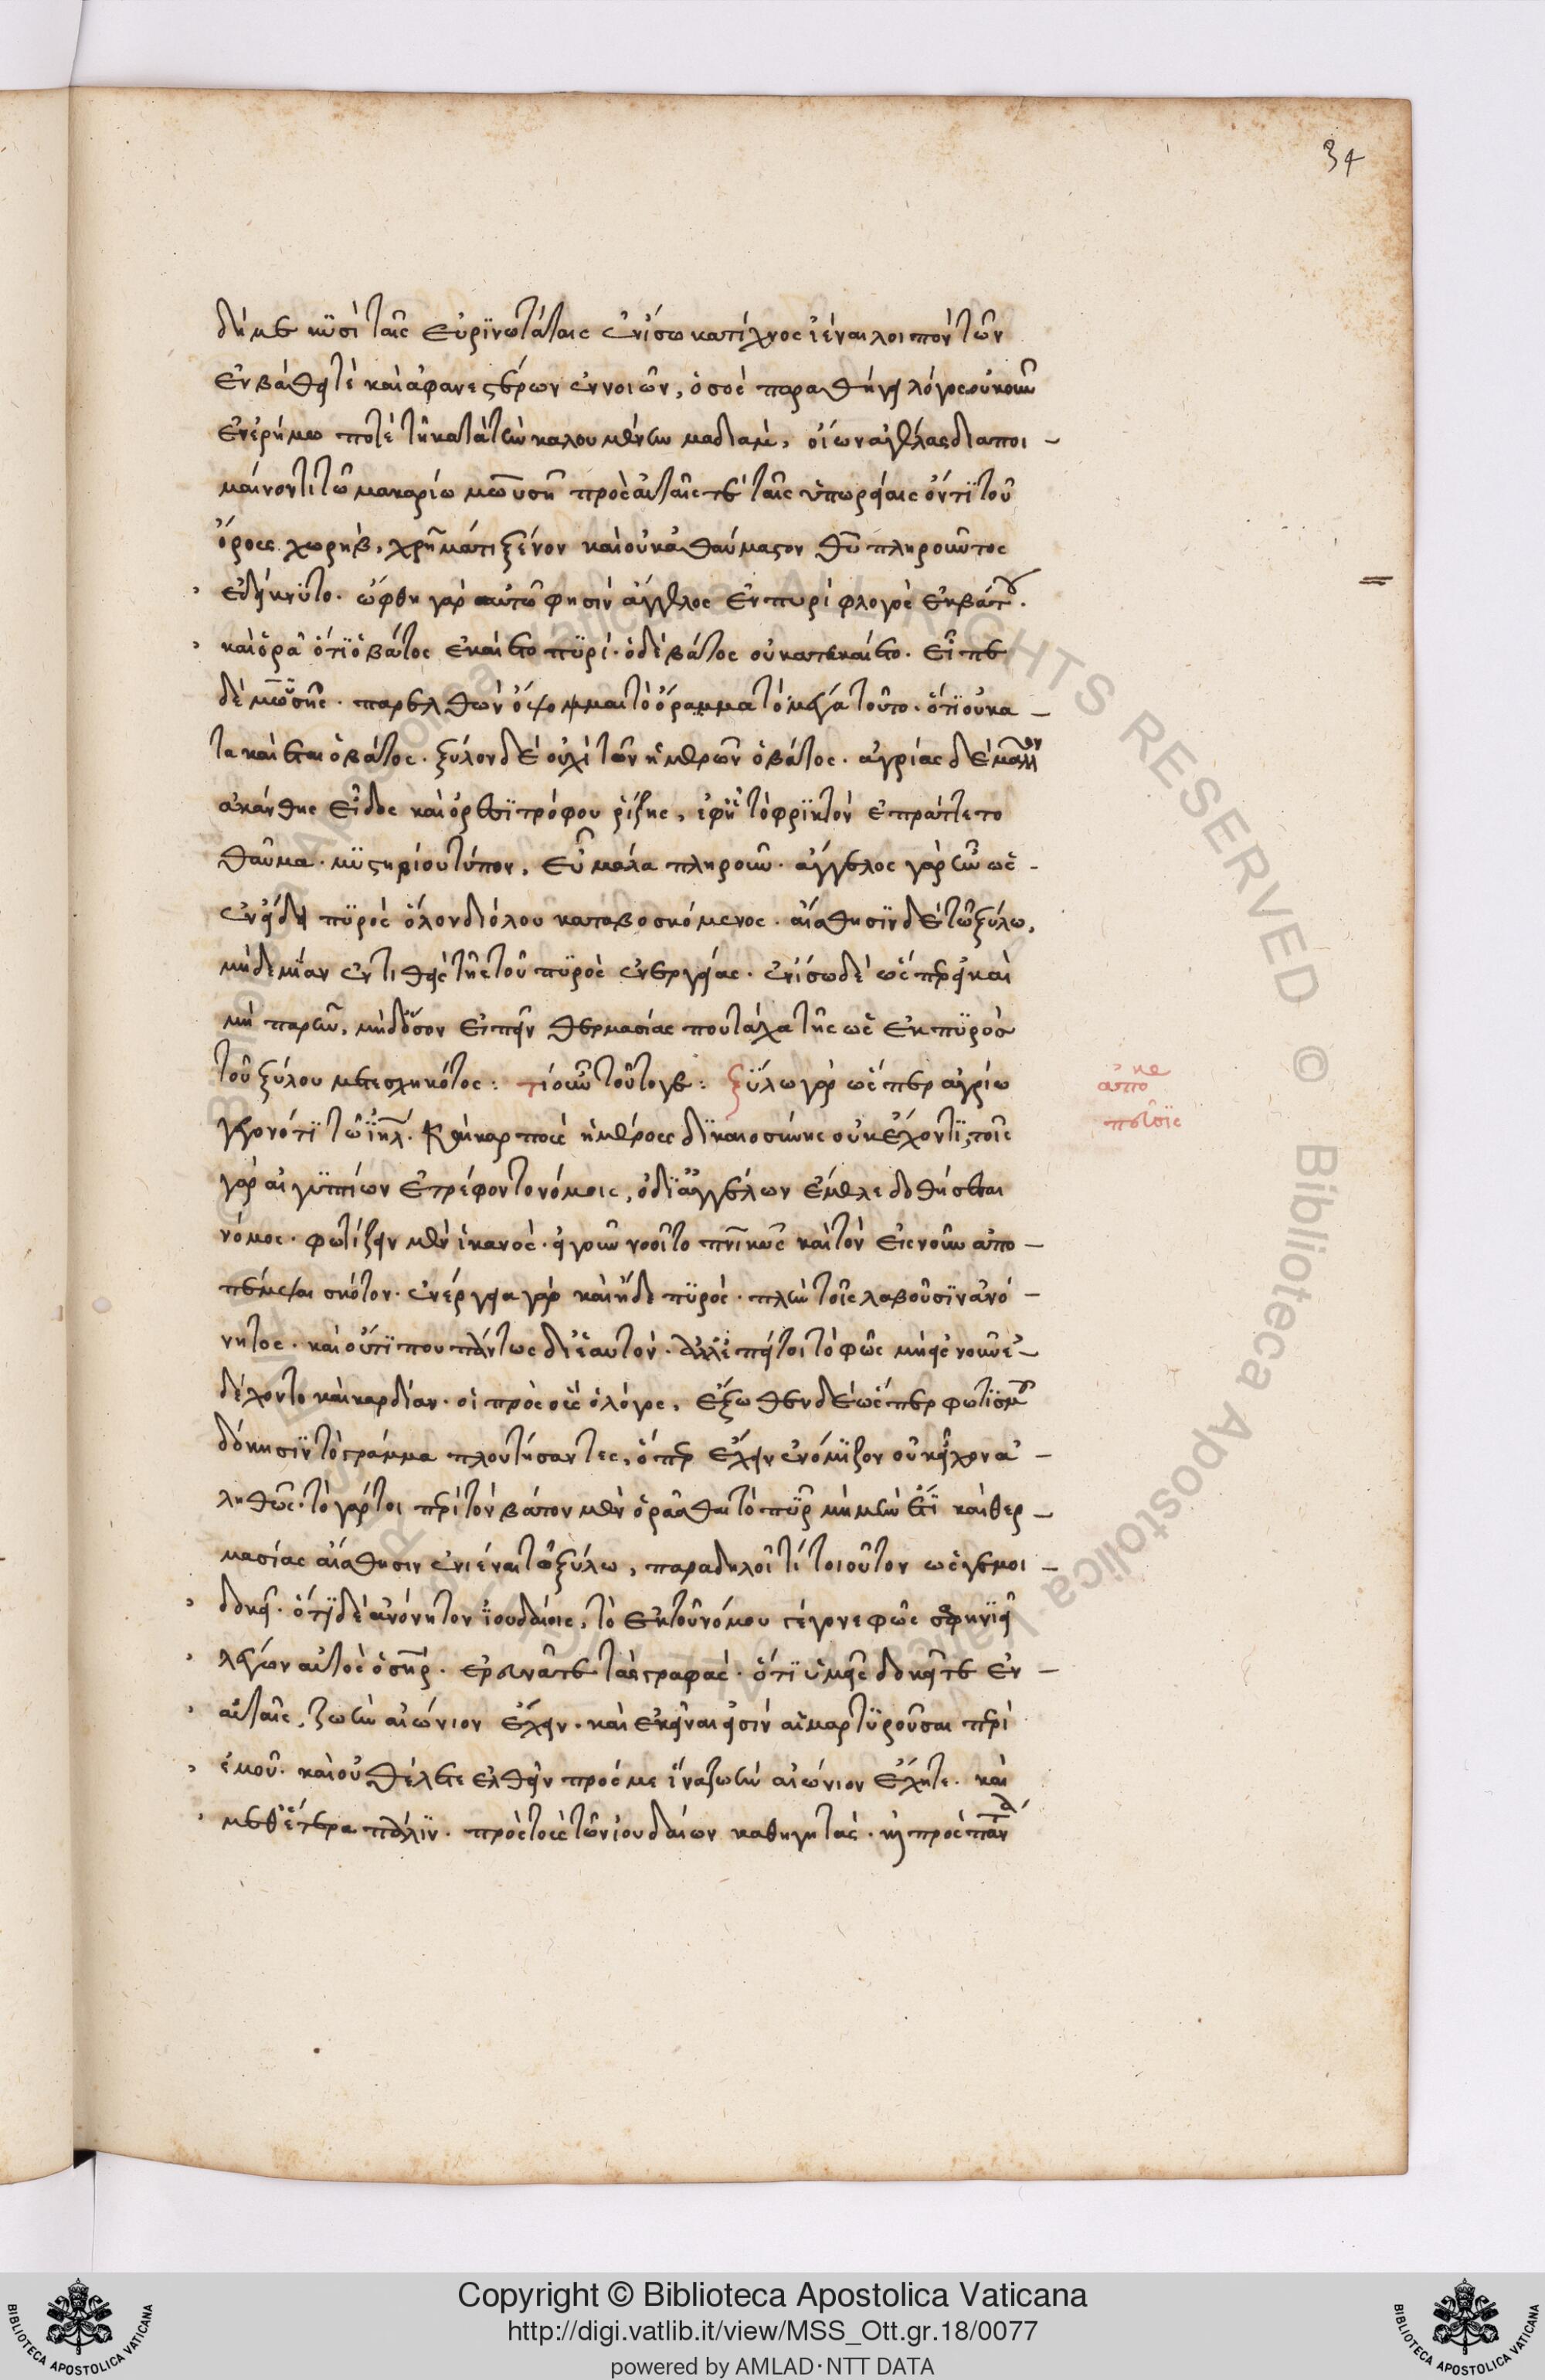 34
δήμε κυσὶ ταῖς εὐρινωτάταις ἐνίσω κατίχνος ἰέναι λοιπὸν τῶν
ἐν βάθει τὲ καὶ ἀφανεστέρων ἐννοιῶν, ὅσος παραθήγει λόγος οὐκοῦν
ἐν ἐρήμω ποτὲ τῆ κατὰ τὴν καλουμένην μαδιὰμ, οἰῶν ἀγέλας διαποι –
μαίνοντι τῶ μακαρίω μωυσῆ πρὸς αὐταῖς τὲ ταῖς ὑπωρείαις ὄντι τοῦ
ὄρους χωρὴβ, χρῆμάτι ξένον καὶ οὐκ ἀθαύμαστον θῦ πληροῦντος
ἐδείκνυτο. ὤφθη γὰρ αὐτῶ φησὶν ἄγγελος ἐν πυρὶ φλογὸς ἐκ βάτου.
καὶ ὁρᾶ ὅτι ὁ βάτος ἐκαίετο πυρί. ὁ δὲ βάτος οὐ κατεκαίετο. εἶπε
δὲ μωσῆς. παρελθὼν ὄψομμαι τὸ ὅραμμα τὸ μέγα τοῦτο. ὅτι οὐ κα –
τακαίεται ὁ βάτος. ξύλον δὲ οὐχὶ τῶν ἡμέρων ὁ βάτος. ἀγρίας δὲ μᾶλλον
ἀκάνθης εἶδος καὶ ὀρθιτρόφου ῥίζης, ἐφ ἧ τὸ φρικτὸν ἐπράττετο
θαῦμα. μυστηρίου τύπον, εὖ μάλα πληροῦν. ἄγγελος γὰρ ἦν ὡς –
ἐν εἴδει πυρὸς ὅλον διόλου καταβοσκόμενος. αἴσθησιν δὲ τῶ ξύλω,
μηδεμίαν ἐντιθεὶς τῆς τοῦ πυρὸς ἐνεργείας. ἐνίσω δὲ ὥσπερ εἰ καὶ
μὴ παρῆν, μηδόσον εἰπεῖν θερμασίας που τάχα τῆς ὡς ἐκ πυρὸς
τοῦ ξύλου μετεσχηκότος: τί οὖν τοῦτό γε: ξύλω γὰρ ὥσπερ ἀγρίω
γεγονότι τῶ ἰηλ. καὶ καρποὺς ἡμέρους δικαιοσύνης οὐκ ἔχοντι, τοῖς
γὰρ αἰγυπτίων ἐτρέφοντο νόμοις, ὁ δι ἀγγέλων ἔμελε δοθήσεται
νόμος. φωτίζειν μὲν ἱκανὸς. εἰ γοῦν νοοῖτο πνικῶς καὶ τὸν εἰς νοῦν ἀπο –
πέμψαι σκότον. ἐνέργεια γὰρ καὶ ἥδε πυρός. πλὴν τοῖς λαβοῦσιν ἀνό –
νητος. καὶ οὔτι που πάντως δι ἑαυτόν. ἀλλ ἐπείτοι τὸ φῶς μὴ εἰς νοῦν ἐ –
δέχοντο καὶ καρδίαν. οἱ πρὸς οὓς ὁ λόγος, ἔξωθεν δὲ ὥσπερ φωτισμοῦ
δόκησιν τὸ γράμμα πλουτήσαντες, ὅπερ ἔχειν ἐνόμιζον οὐκ εἶχον ἀ –
ληθῶς. τὸ γάρτοι περὶ τὸν βάτον μὲν ὁρᾶσθαι τὸ πῦρ μὴ μὴν ἔτι καὶ θερ –
μασίας αἴσθησιν ἐνιέναι τῶ ξύλω, παραδηλοῖ τί τοιοῦτον ὥς γέ μοι –
δοκεῖ. ὅτι δὲ ἀνόνητον ἰουδαίοις, τὸ ἐκ τοῦ νόμου γέγονε φῶς σαφηνιεῖ
λέγων αὐτὸς ὁ σηρ. ἐρευνᾶτε τὰς γραφὰς. ὅτι ὑμεῖς δοκεῖτε ἐν –
αὐταῖς, ζωὴν αἰώνιον ἔχειν. καὶ ἐκεῖναι εἰσὶν αἱ μαρτυροῦσαι περὶ
ἐμοῦ. καὶ οὐ θέλετε ἐλθεῖν πρός με ἵνα ζωὴν αἰώνιον ἔχητε. καὶ
μεθ ἕτερα πάλιν. πρὸς τοὺς τῶν ἰουδαίων καθηγητάς. ἢ πρὸς πάντα
κε
απο
Copyright © Biblioteca Apostolica Vaticana
http://digi.vatlib.it/view/MSS_Ott.gr.18/0077
powered by AMLAD·NTT DATA
BIBLIOTECA APOSTOLICA VATICANA
BIBLIOTECA APOSTOLICA VATICANA
Biblioteca Apostolica Vaticana ALL RIGHTS RESERVED © Biblioteca Apostolica Vaticana